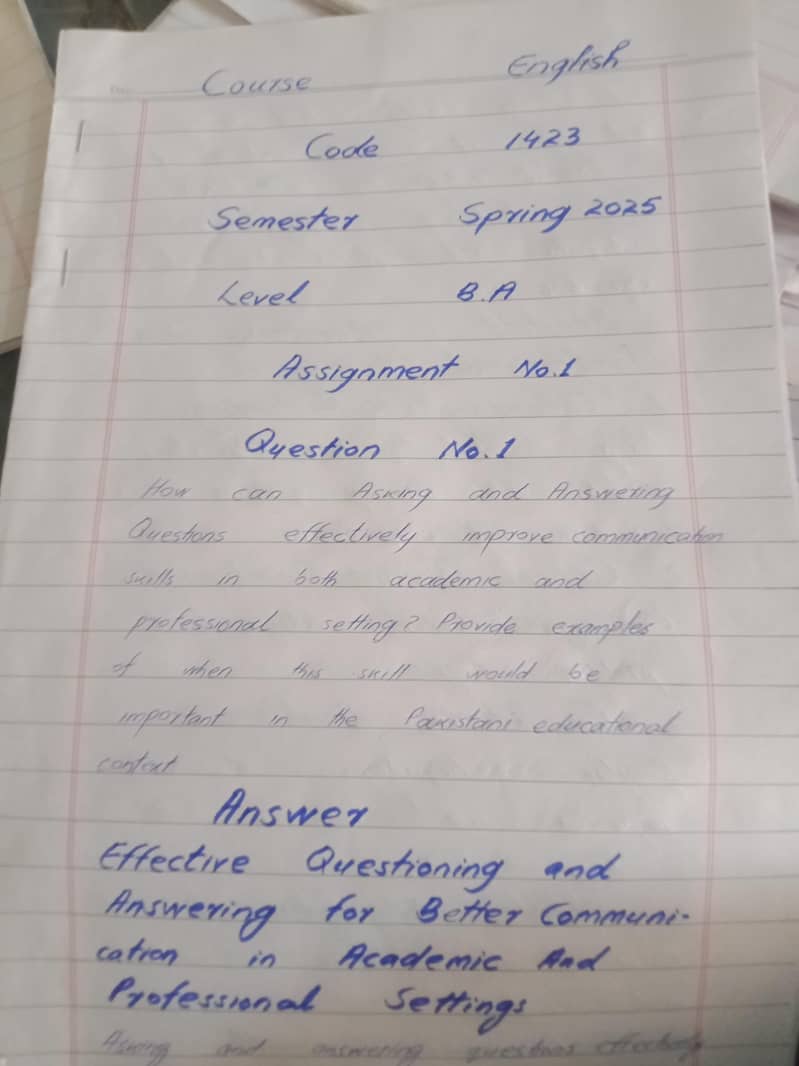 Course English
Code 1423
Semester Spring 2025
Level B.A
Assignment No.1
Question No.1
How can Asking and Answering
Questions effectively improve communication
skills in both academic and
professional setting? Provide examples
of when this skill would be
important in the Pakistani educational
context
Answer
Effective Questioning and
Answering for Better Communi-
cation in Academic And
Professional Settings
Asking and answering questions effectively